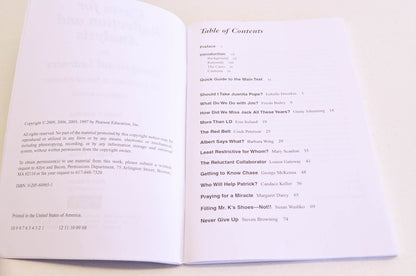 Copyright © 2009, 2006, 2003, 1997 by Pearson Education, Inc.
All rights reserved. No part of the material protected by this copyright notice may be
reproduced or utilized in any form or by any means, electronic or mechanical,
including photocopying, recording, or by any information storage and retrieval
system, without written permission from the copyright owner.
To obtain permission(s) to use material from this work, please submit a written
request to Allyn and Bacon, Permissions Department, 75 Arlington Street, Boston,
MA 02116 or fax your request to 617-848-7320.
Printed in the United States of America.
10 9 8 7 6 5 4 3 2 1 12 11 10 09 08
Table of Contents
Preface v
Introduction
Background
Rationale
The Cases
Quick Guide to the Main Text
Should I Take Juanita Pope?
What Do We Do with Jim?
How Did We Miss Jack All These Years?
More Than LD
The Red Belt
Albert Says What? Barbara Weng
Least Restrictive for Whom? Mary Scanlon
The Reluctant Collaborator Louise Gateway 41
Getting to Know Chase George McKenna 48
Who Will Help Patrick? Candace Keller 56
Praying for a Miracle Margaret Darcy 65
Filling Mr. K's Shoes—Not!! Susan Washko 69
Never Give Up Steven Browning 74